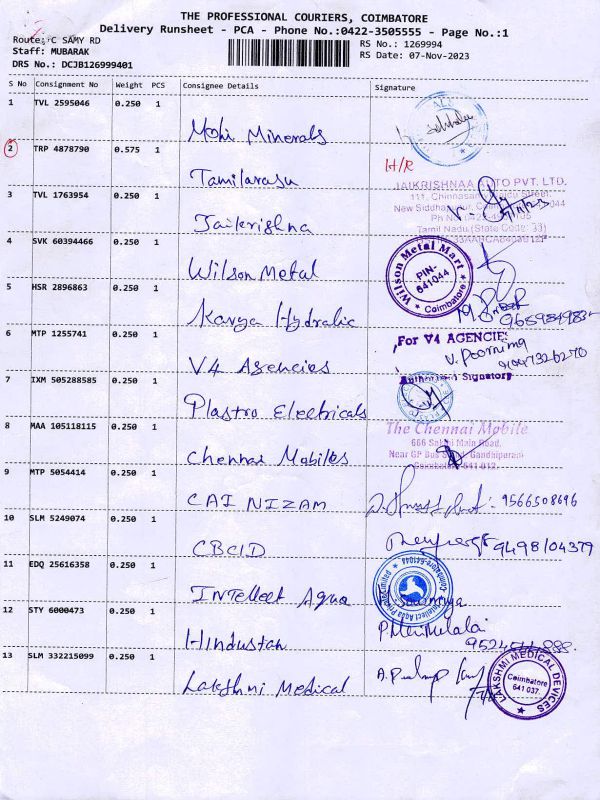 THE PROFESSIONAL COURIERS, COIMBATORE
Delivery Runsheet - PCA - Phone No.:0422-3505555 - Page No.:1
Route: C SAMY RD
Staff: MUBARAK
DRS No.: DCJB126999401
RS No.: 1269994
RS Date: 07-Nov-2023
S No Consignment No Weight PCS Consignee Details Signature
1 TVL 2595046 0.250 1 Mohi Minerals
2 TRP 4878790 0.575 1 Tamilarasu H/R
3 TVL 1763954 0.250 1 Jaikrishna
JAIKRISHNAA AUTO PVT. LTD.
Tamil Nadu (State Code: 33)
4 SVK 60394466 0.250 1 Wilson Metal
Wilson Metal Mart
PIN:-
641044
Coimbatore
5 HSR 2896863 0.250 1 Kavya Hydralic
6 MTP 1255741 0.250 1 V4 Agencies
For V4 AGENCIES
V. Poornima
Authorised Signatory
7 IXM 505288585 0.250 1 Plastro Electricals
8 MAA 105118115 0.250 1 Chennai Mobiles
The Chennai Mobile
666 Sakthi Main Road,
Near GP Bus Gandhipuram
Coimbatore 641 012.
9 MTP 5054414 0.250 1 CAI NIZAM 9566508696
10 SLM 5249074 0.250 1 CBCID 9498104379
11 EDQ 25616358 0.250 1 Intellect Aqua
12 STY 6000473 0.250 1 Hindustan
13 SLM 332215099 0.250 1 Lakshmi Medical
LAKSHMI MEDICAL DEVICES
Coimbatore
641 037.